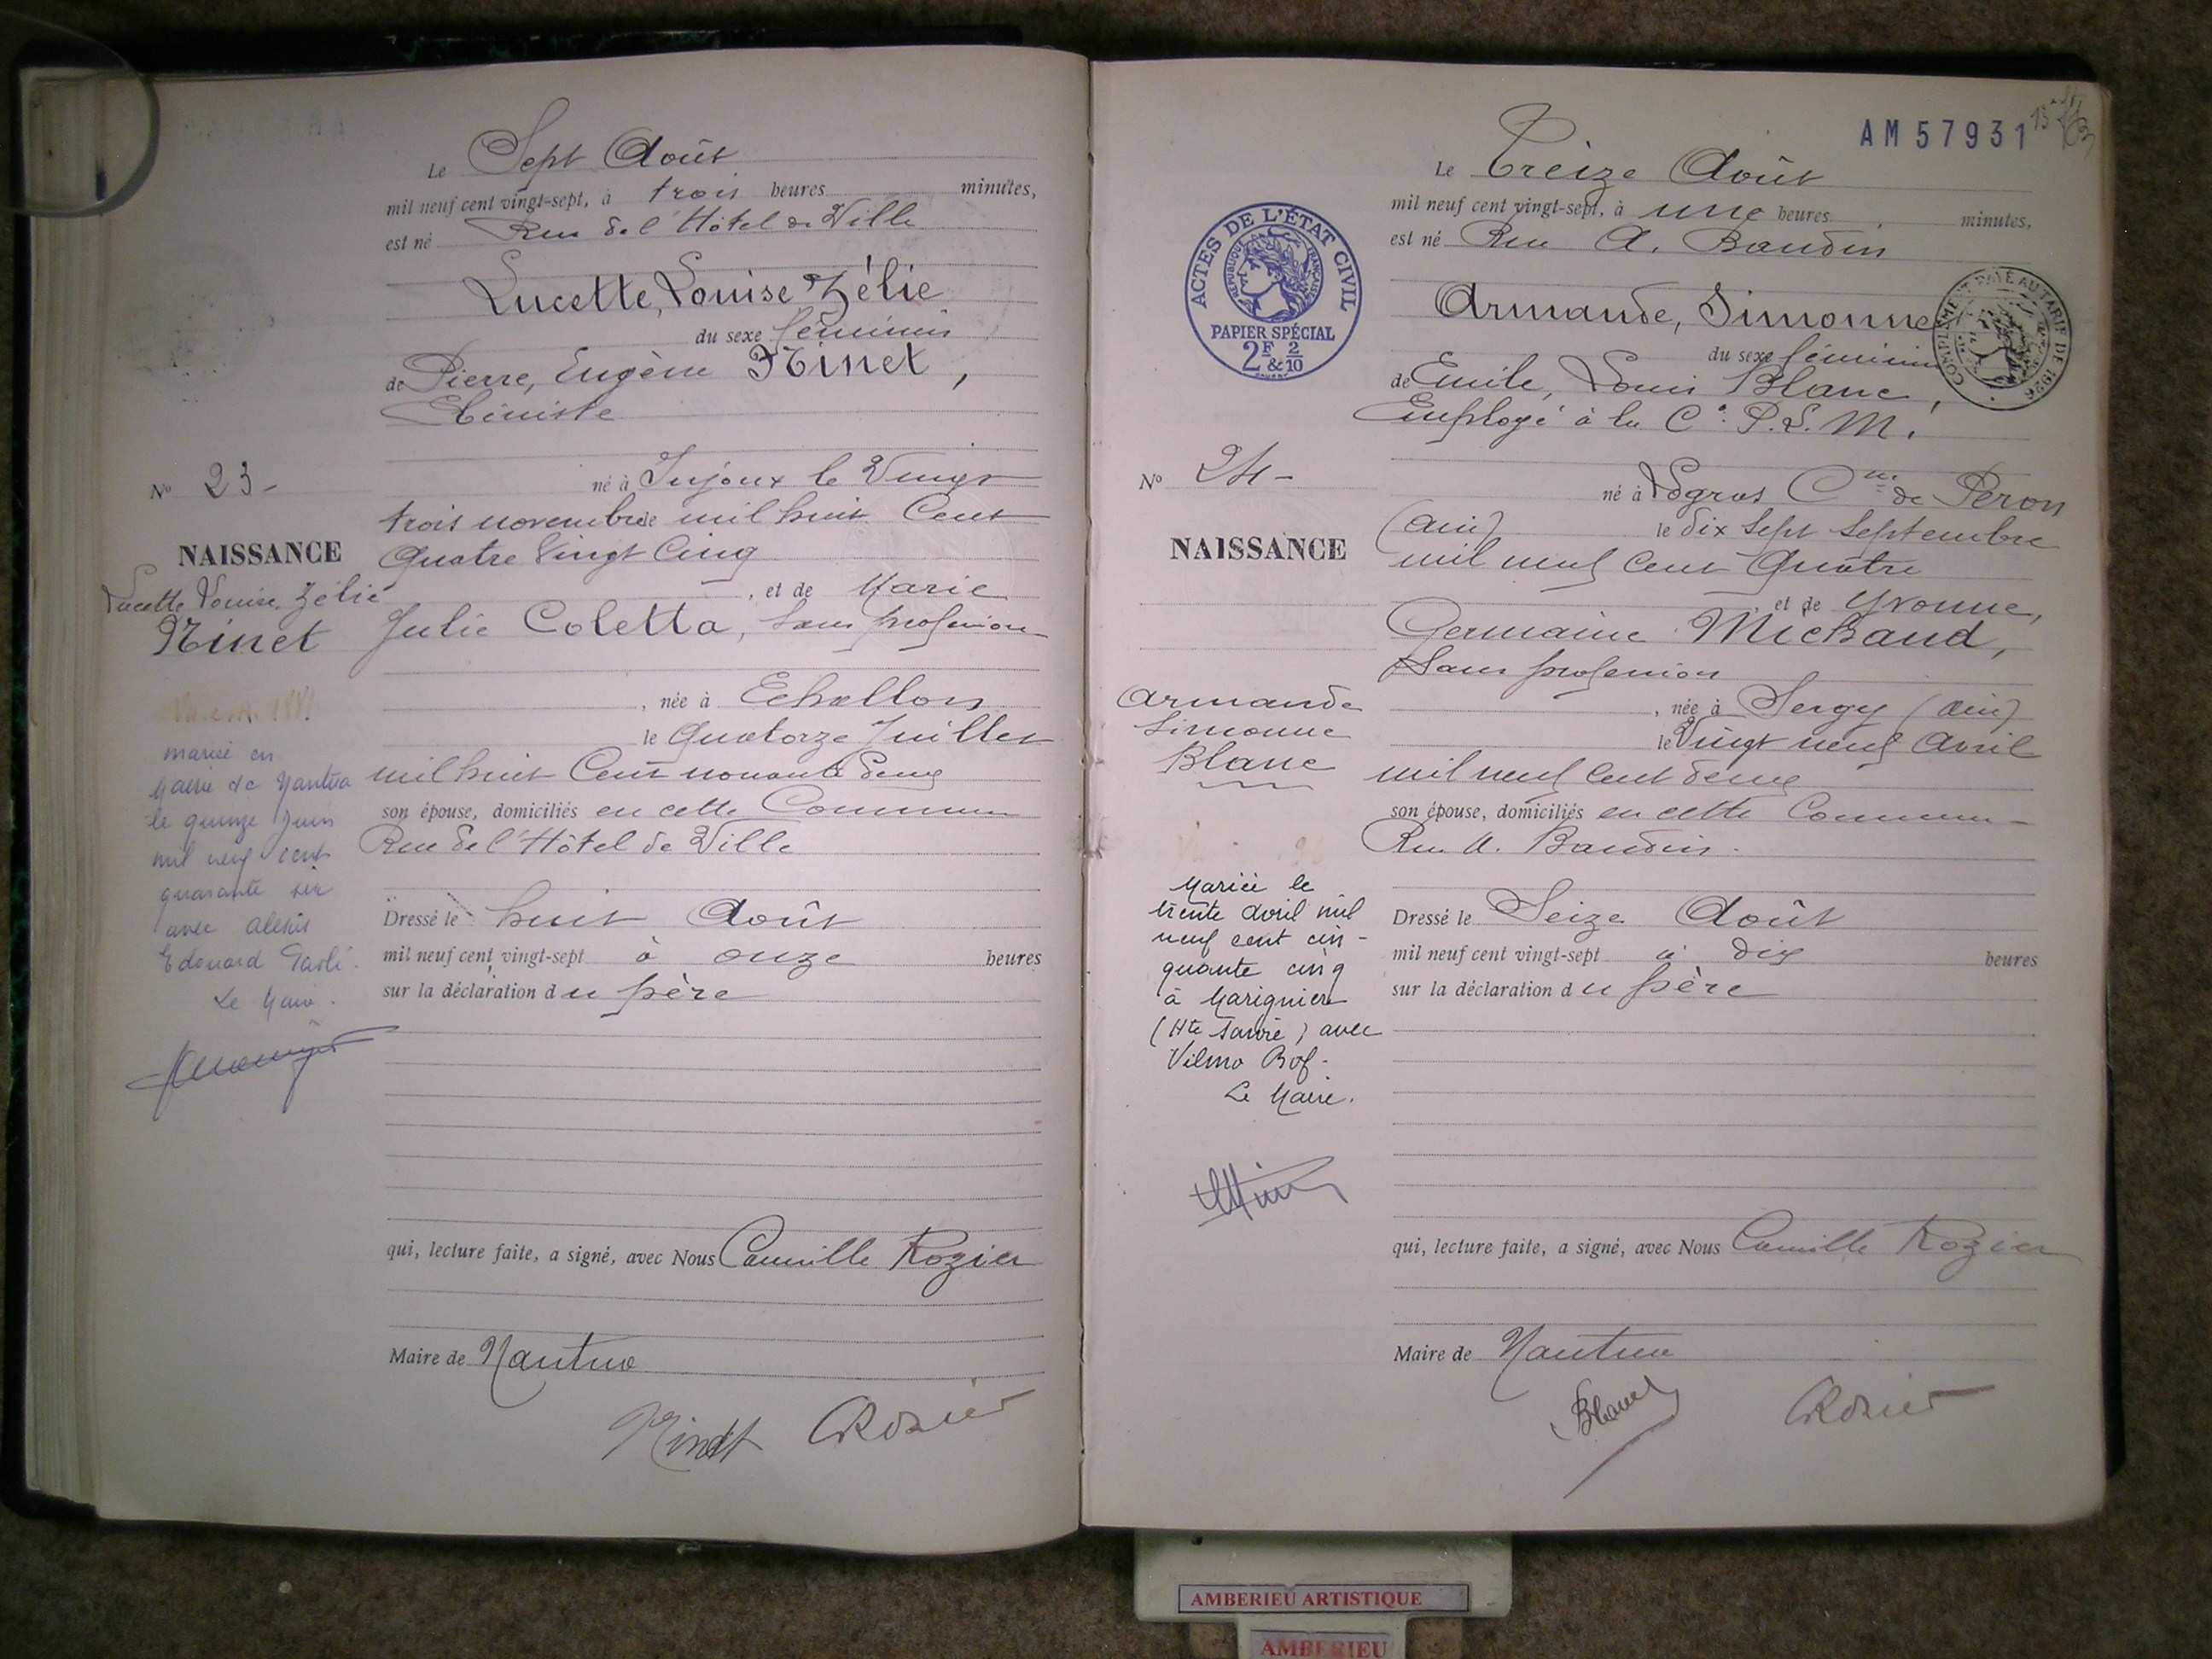 Le Sept Août
mil neuf cent vingt-sept, à trois heures minutes,
est né Rue de l'Hôtel de Ville
Lucette, Louise Zélie
du sexe féminin
de Pierre, Eugène Ninet,
Ebéniste
né à Injoux le Vingt
trois novembre mil huit Cent
Quatre Vingt Cinq
, et de Marie
Julie Coletta, Sans profession
, née à Echallon
le Quatorze Juillet
mil huit Cent nonante deux
son épouse, domiciliés en cette Commune
Rue de l'Hôtel de Ville
Dressé le huit Août
mil neuf cent vingt-sept à onze heures
sur la déclaration du père
qui, lecture faite, a signé, avec Nous Camille Rozier
Maire de Nantua
Ninet CRozier
No 23-
NAISSANCE
Lucette Louise Zélie
Ninet
mariée en
Mairie de Nantua
le quinze Juin
mil neuf cent
quarante six
avec
Edouard
Le Maire.
AM57931
Le Treize Août
mil neuf cent vingt-sept, à une heures minutes,
est né Rue A. Baudin
Armande, Simonne
du sexe féminin
de Emile, Louis Blanc,
Employé à la Cie P.L.M.
né à Logras Cne de Péron
(Ain) le dix Sept Septembre
mil neuf Cent Quatre
et de Yvonne,
Germaine Michaud,
Sans profession
, née à Sergy (Ain)
le Vingt neuf Avril
mil neuf Cent deux
son épouse, domiciliés en cette Commune
Rue A. Baudin.
Dressé le Seize Août
mil neuf cent vingt-sept à dix heures
sur la déclaration du père
qui, lecture faite, a signé, avec Nous Camille Rozier
Maire de Nantua
Blanc CRozier
ACTES DE L'ÉTAT CIVIL
RÉPUBLIQUE FRANÇAISE
PAPIER SPÉCIAL
2F & 2/10
COMPLÉMENT PAYÉ AU TARIF DE 1926
No 24-
NAISSANCE
Armande
Simonne
Blanc
Mariée le
trente avril mil
neuf cent cin-
quante cinq
à Marignier
(Hte Savoie) avec
Vilmo Bof.
Le Maire.
AMBERIEU ARTISTIQUE
AMBERIEU